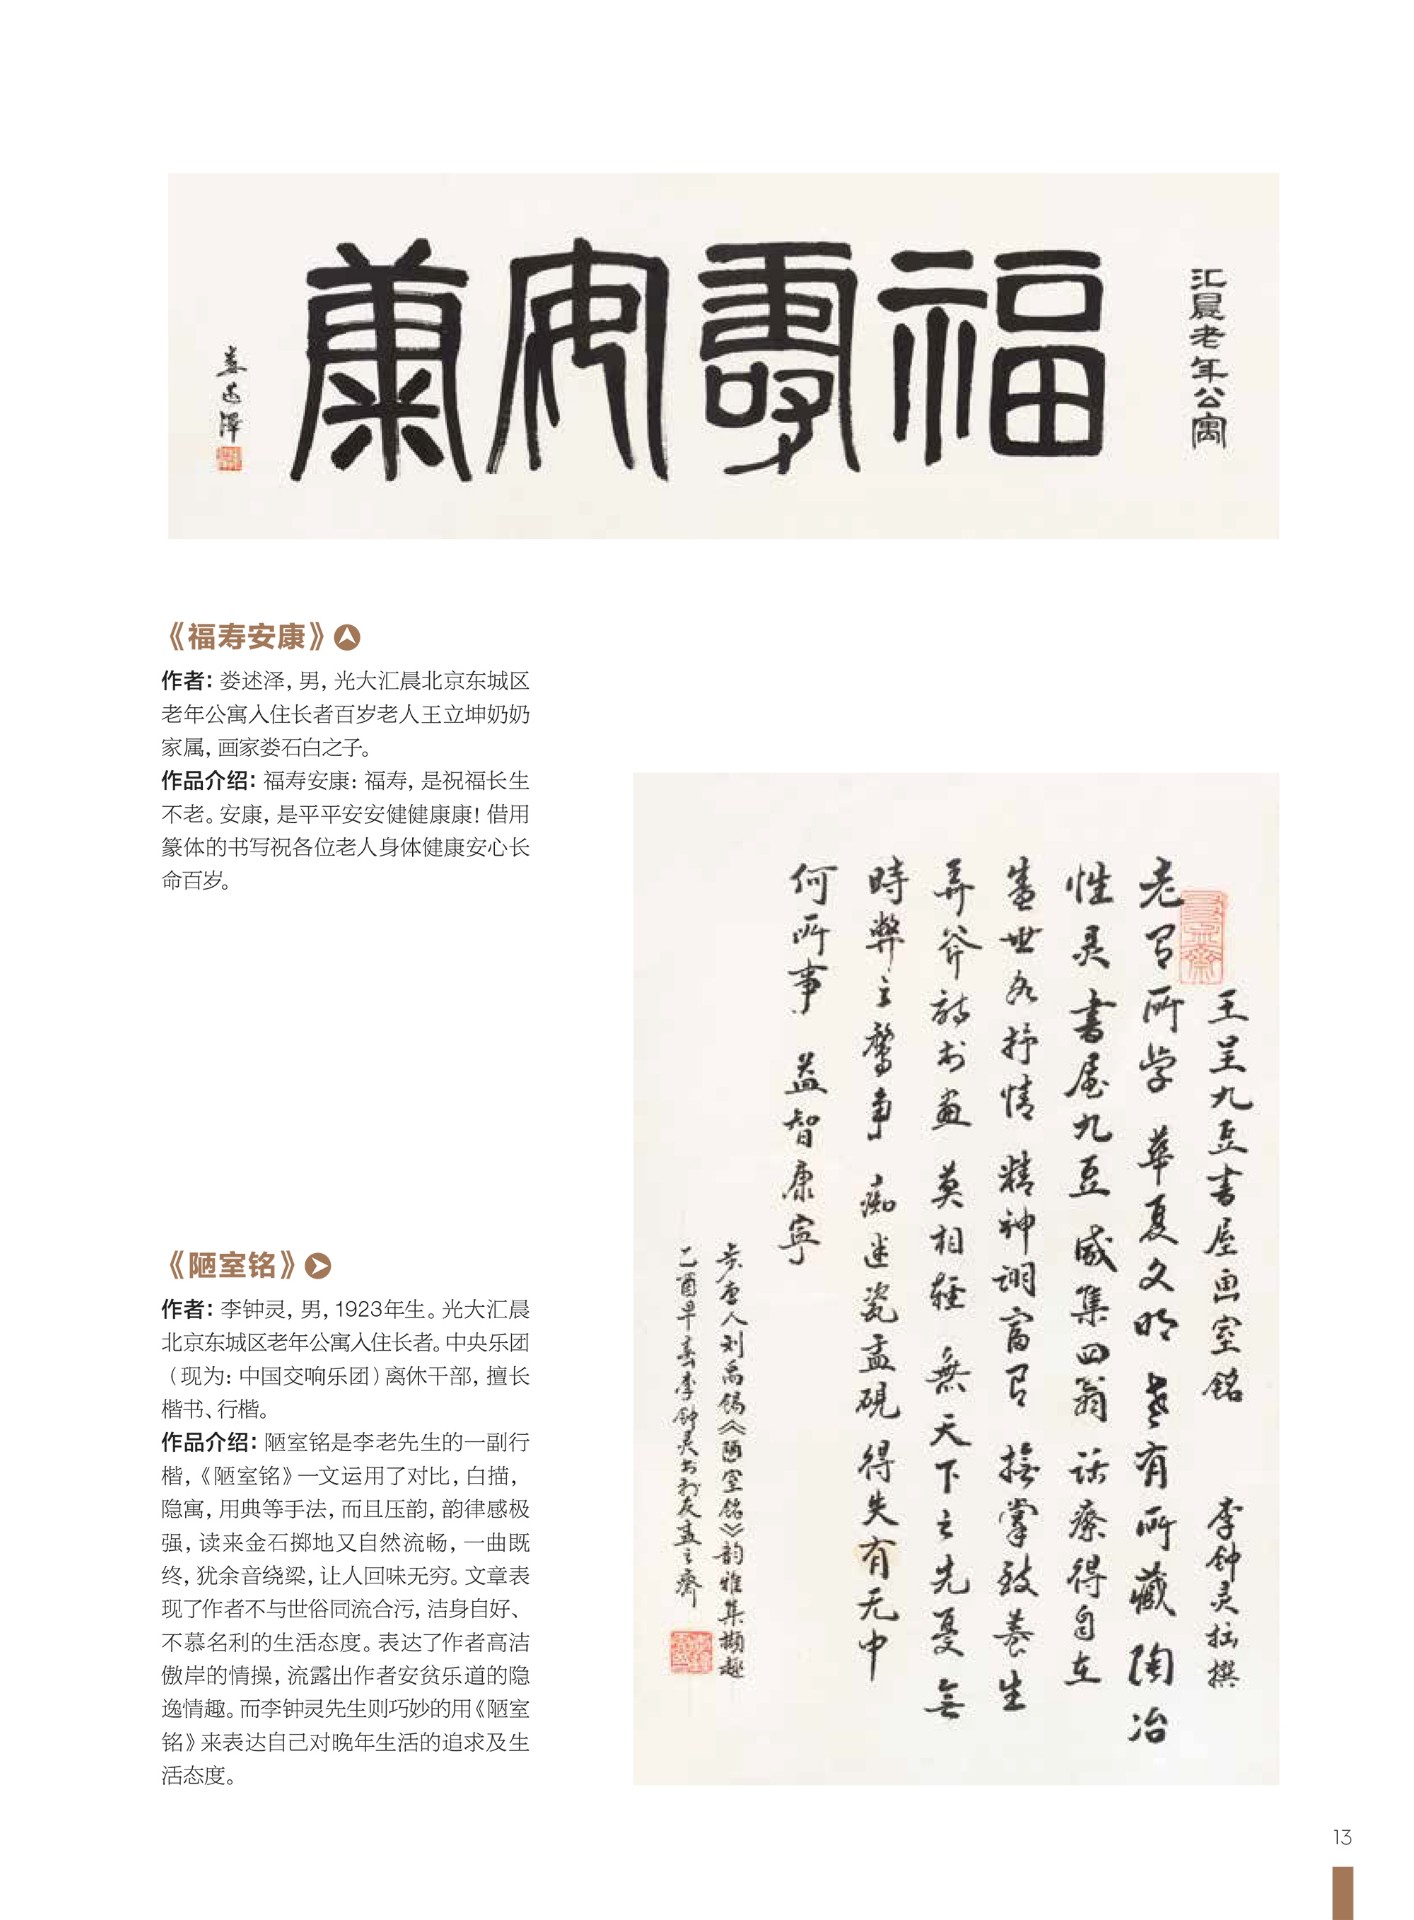 福壽安康
汇晨老年公寓
娄述泽
《福寿安康》
作者：娄述泽，男，光大汇晨北京东城区
老年公寓入住长者百岁老人王立坤奶奶
家属，画家娄石白之子。
作品介绍：福寿安康：福寿，是祝福长生
不老。安康，是平平安安健健康康！借用
篆体的书写祝各位老人身体健康安心长
命百岁。
王呈九豆书屋画室铭 李钟灵拙撰
老有所学 華夏文明 老有所藏 陶冶
性灵 書屋九豆 咸集四翁 话療得自在
盛世 抒情 精神 富有 掌致养生
弄斧 於画 莫相輕 無天下之先憂 無
時弊之驚争 痴迷瓷盂硯 得失有无中
何所事 益智康寧
唐人刘禹锡《陋室铭》韵雅集撷趣
乙酉早春李钟灵书于友直之齋
《陋室铭》
作者：李钟灵，男，1923年生。光大汇晨
北京东城区老年公寓入住长者。中央乐团
（现为：中国交响乐团）离休干部，擅长
楷书、行楷。
作品介绍：陋室铭是李老先生的一副行
楷，《陋室铭》一文运用了对比，白描，
隐寓，用典等手法，而且压韵，韵律感极
强，读来金石掷地又自然流畅，一曲既
终，犹余音绕梁，让人回味无穷。文章表
现了作者不与世俗同流合污，洁身自好、
不慕名利的生活态度。表达了作者高洁
傲岸的情操，流露出作者安贫乐道的隐
逸情趣。而李钟灵先生则巧妙的用《陋室
铭》来表达自己对晚年生活的追求及生
活态度。
13